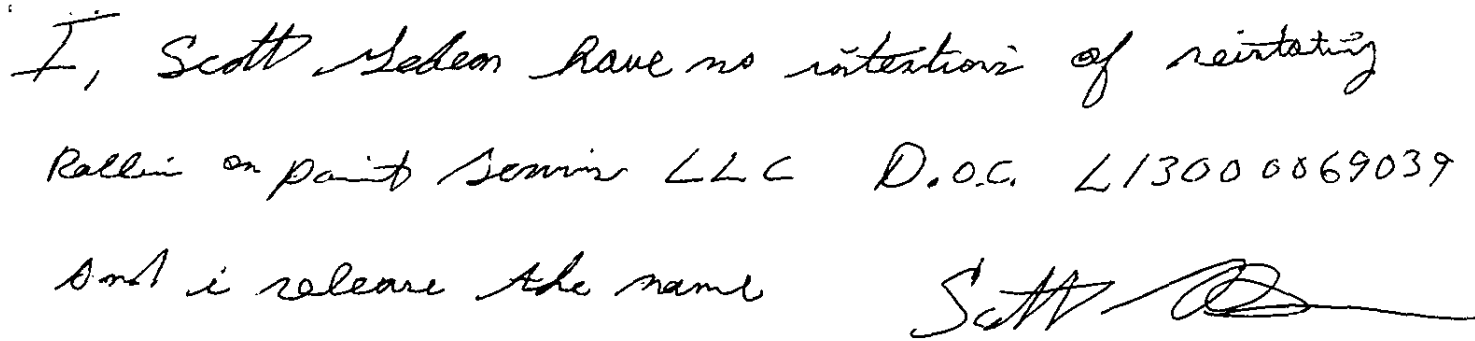 I, Scott Gedeon have no intentions of reintating
Rollin on paint Servics LLC D.O.C. L13000069039
And i release the name Scott